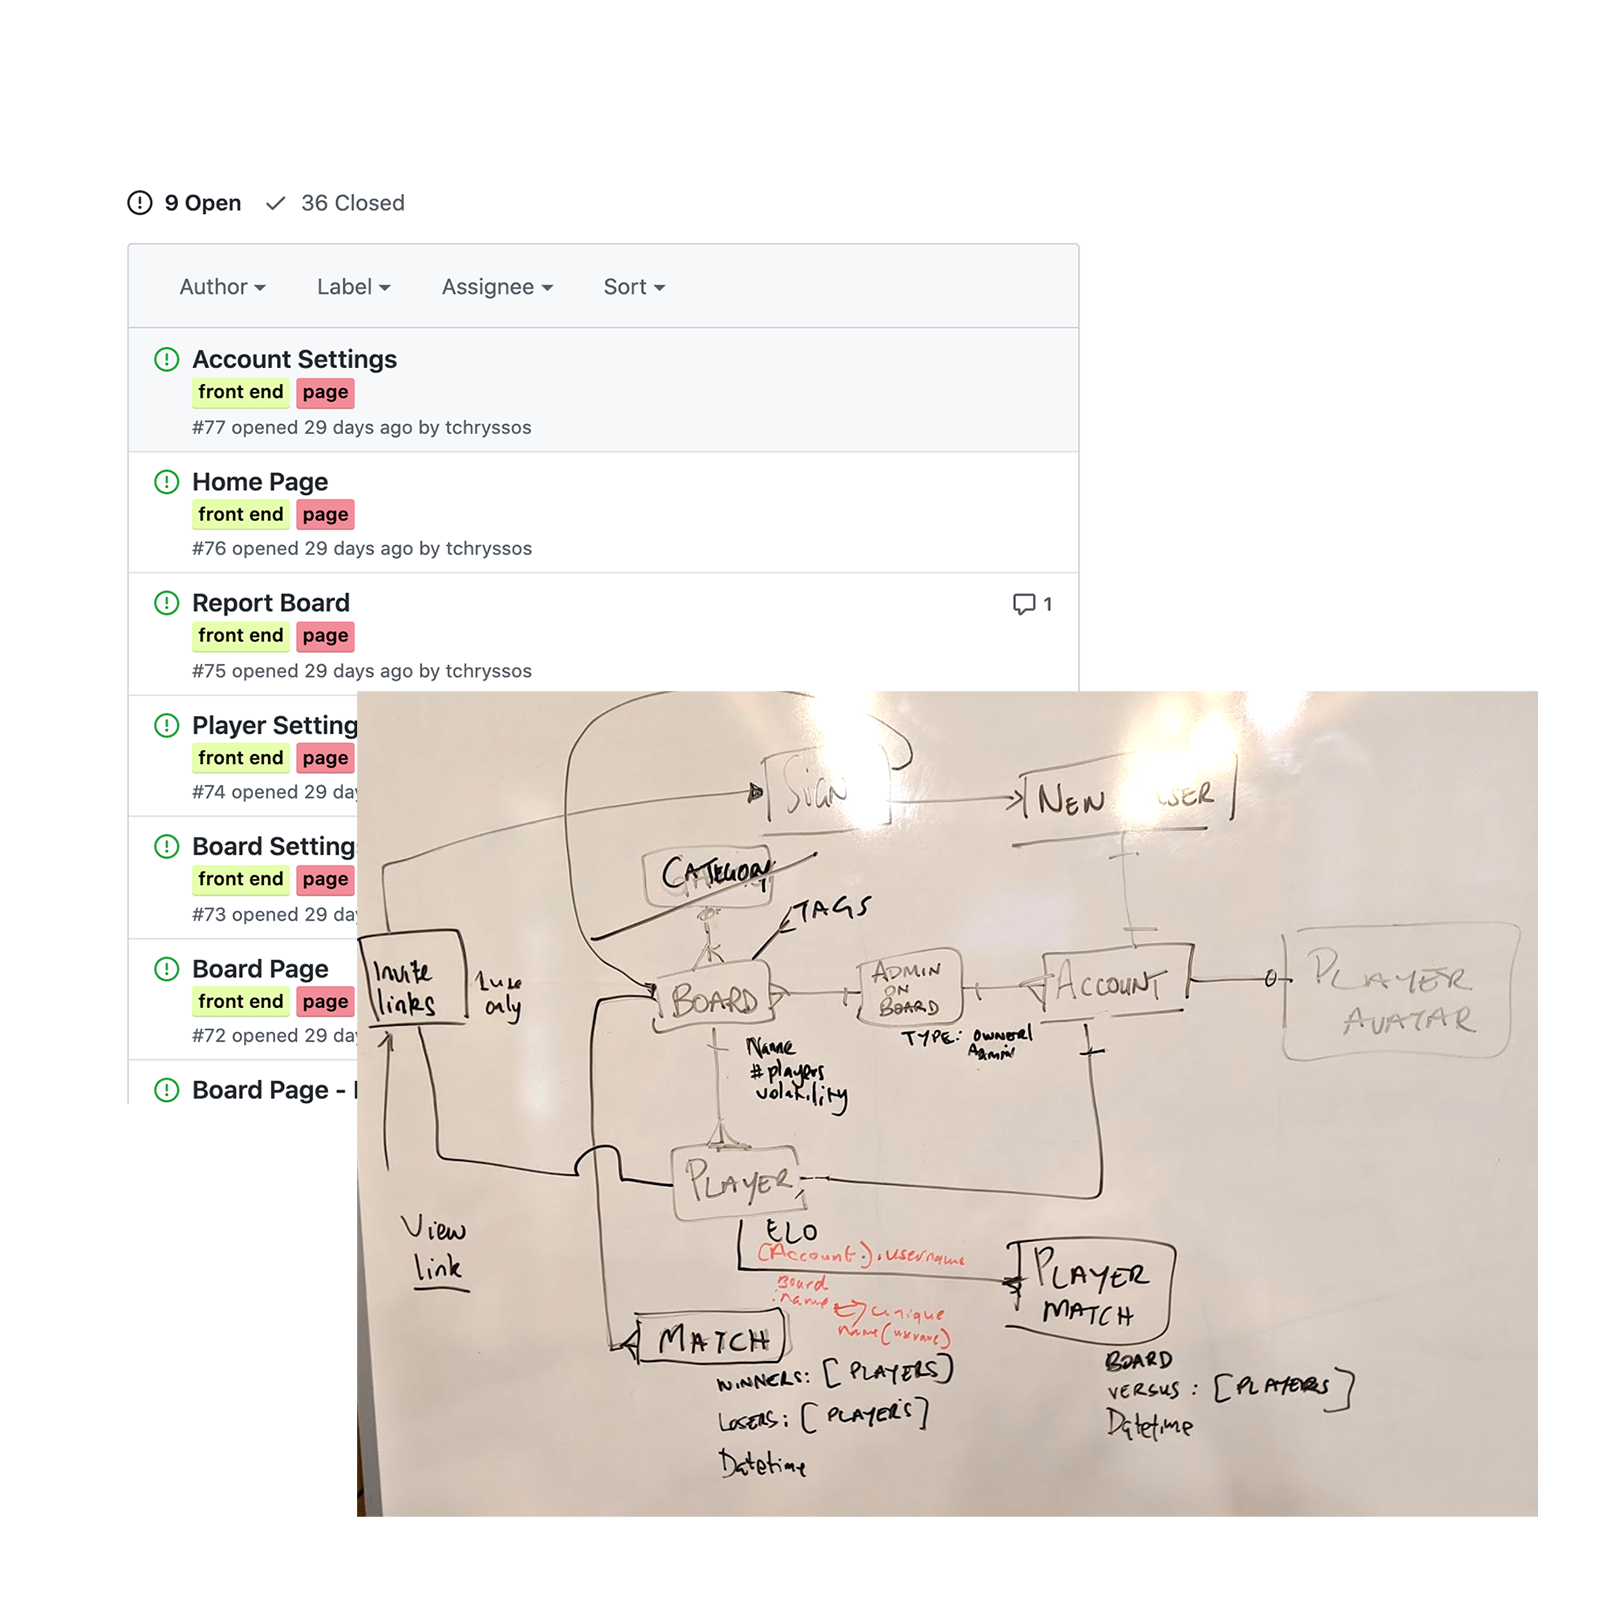 9 Open 36 Closed
Author Label Assignee Sort
Account Settings
front end page
#77 opened 29 days ago by tchryssos
Home Page
front end page
#76 opened 29 days ago by tchryssos
Report Board
1
front end page
#75 opened 29 days ago by tchryssos
Player Setting
front end page
#74 opened 29 da
Board Setting
front end page
#73 opened 29 da
Board Page
front end page
#72 opened 29 da
Board Page -
SIGN
NEW USER
CATEGORY
TAGS
Invite
links
1 use
only
BOARD
ADMIN
ON
BOARD
ACCOUNT
PLAYER
AVATAR
TYPE: owner/
Admin
Name
# players
volatility
PLAYER
View
link
ELO
(Account).username
Board
name
unique
name (username)
PLAYER
MATCH
MATCH
WINNERS: [PLAYERS]
LOSERS: [PLAYERS]
Datetime
BOARD
VERSUS: [PLAYERS]
Datetime